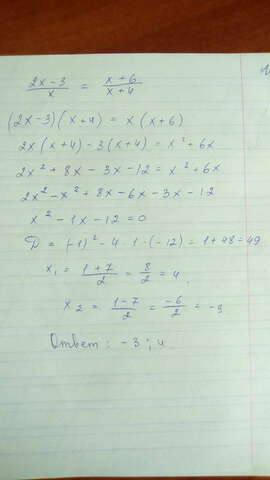 2x-3/x = x+6/x+4
(2x-3)(x+4) = x(x+6)
2x(x+4)-3(x+4) = x²+6x
2x²+8x-3x-12 = x²+6x
2x²-x²+8x-6x-3x-12
x²-1x-12=0
D = (-1)²-4·1·(-12) = 1+48=49
x₁ = 1+7/2 = 8/2 = 4
x₂ = 1-7/2 = -6/2 = -3
Ответ: -3; 4